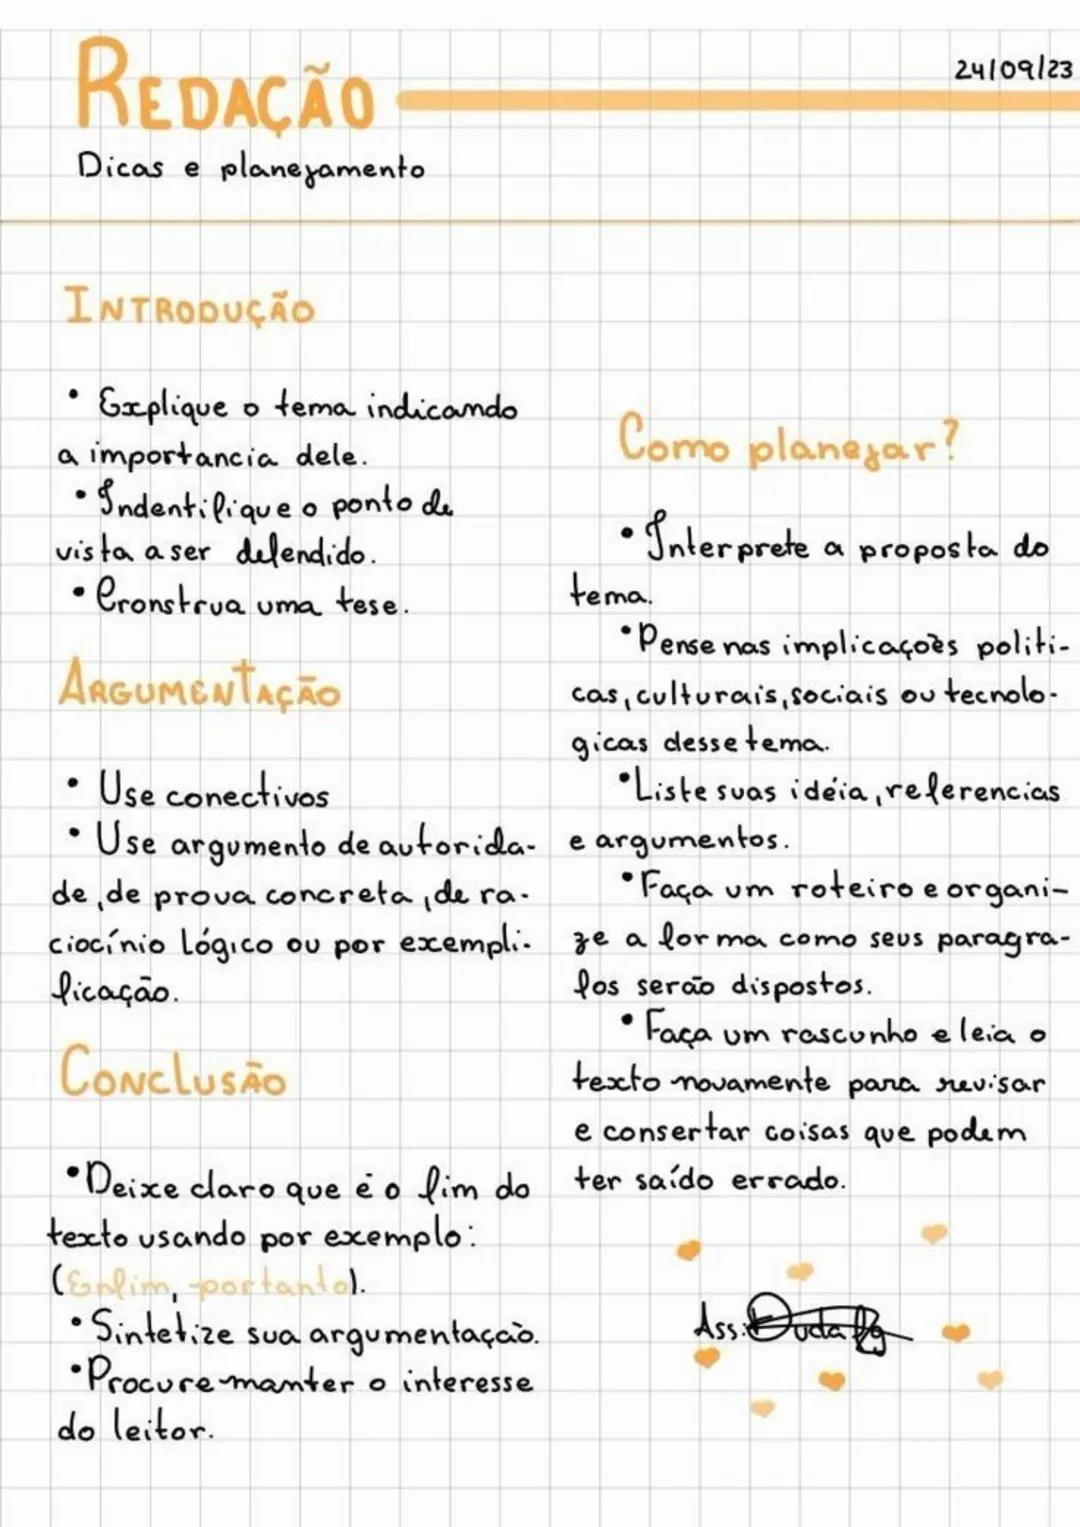 REDAÇÃO
24/09/23
Dicas e planejamento
INTRODUÇÃO
• Explique o tema indicando
a importancia dele.
• Indentifique o ponto de
vista a ser defendido.
• Cronstrua uma tese.
ARGUMENTAÇÃO
• Use conectivos
• Use argumento de autorida-
de, de prova concreta, de ra-
ciocínio lógico ou por exempli-
ficação.
CONCLUSÃO
• Deixe claro que é o fim do
texto usando por exemplo:
(Enfim, portanto).
• Sintetize sua argumentação.
• Procure manter o interesse
do leitor.
Como planejar?
• Interprete a proposta do
tema.
• Pense nas implicações politi-
cas, culturais, sociais ou tecnolo-
gicas desse tema.
• Liste suas idéia, referencias
e argumentos.
• Faça um roteiro e organi-
ze a forma como seus paragra-
fos serão dispostos.
• Faça um rascunho e leia o
texto novamente para revisar
e consertar coisas que podem
ter saído errado.
Ass: Duda